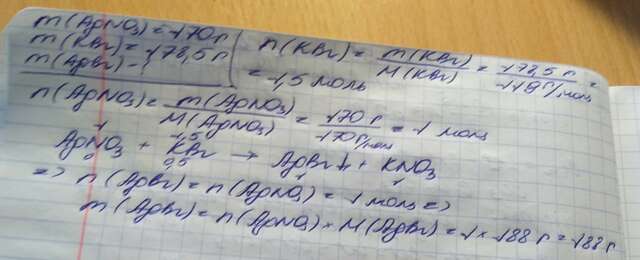 m(AgNO₃)=170г
m(KBr)=178,5г
m(AgBr)-?
n(KBr)= m(KBr)/M(KBr) = 178,5 г/119г/моль =
=1,5 моль
n(AgNO₃)= m(AgNO₃)/M(AgNO₃) = 170 г/170 г/моль = 1 моль
1 1,5
AgNO₃ + KBr → AgBr↓ + KNO₃
0 0,5 1 1
=> n(AgBr)=n(AgNO₃)=1 моль =>
m(AgBr)=n(AgNO₃)×M(AgBr)=1×188 г=188 г